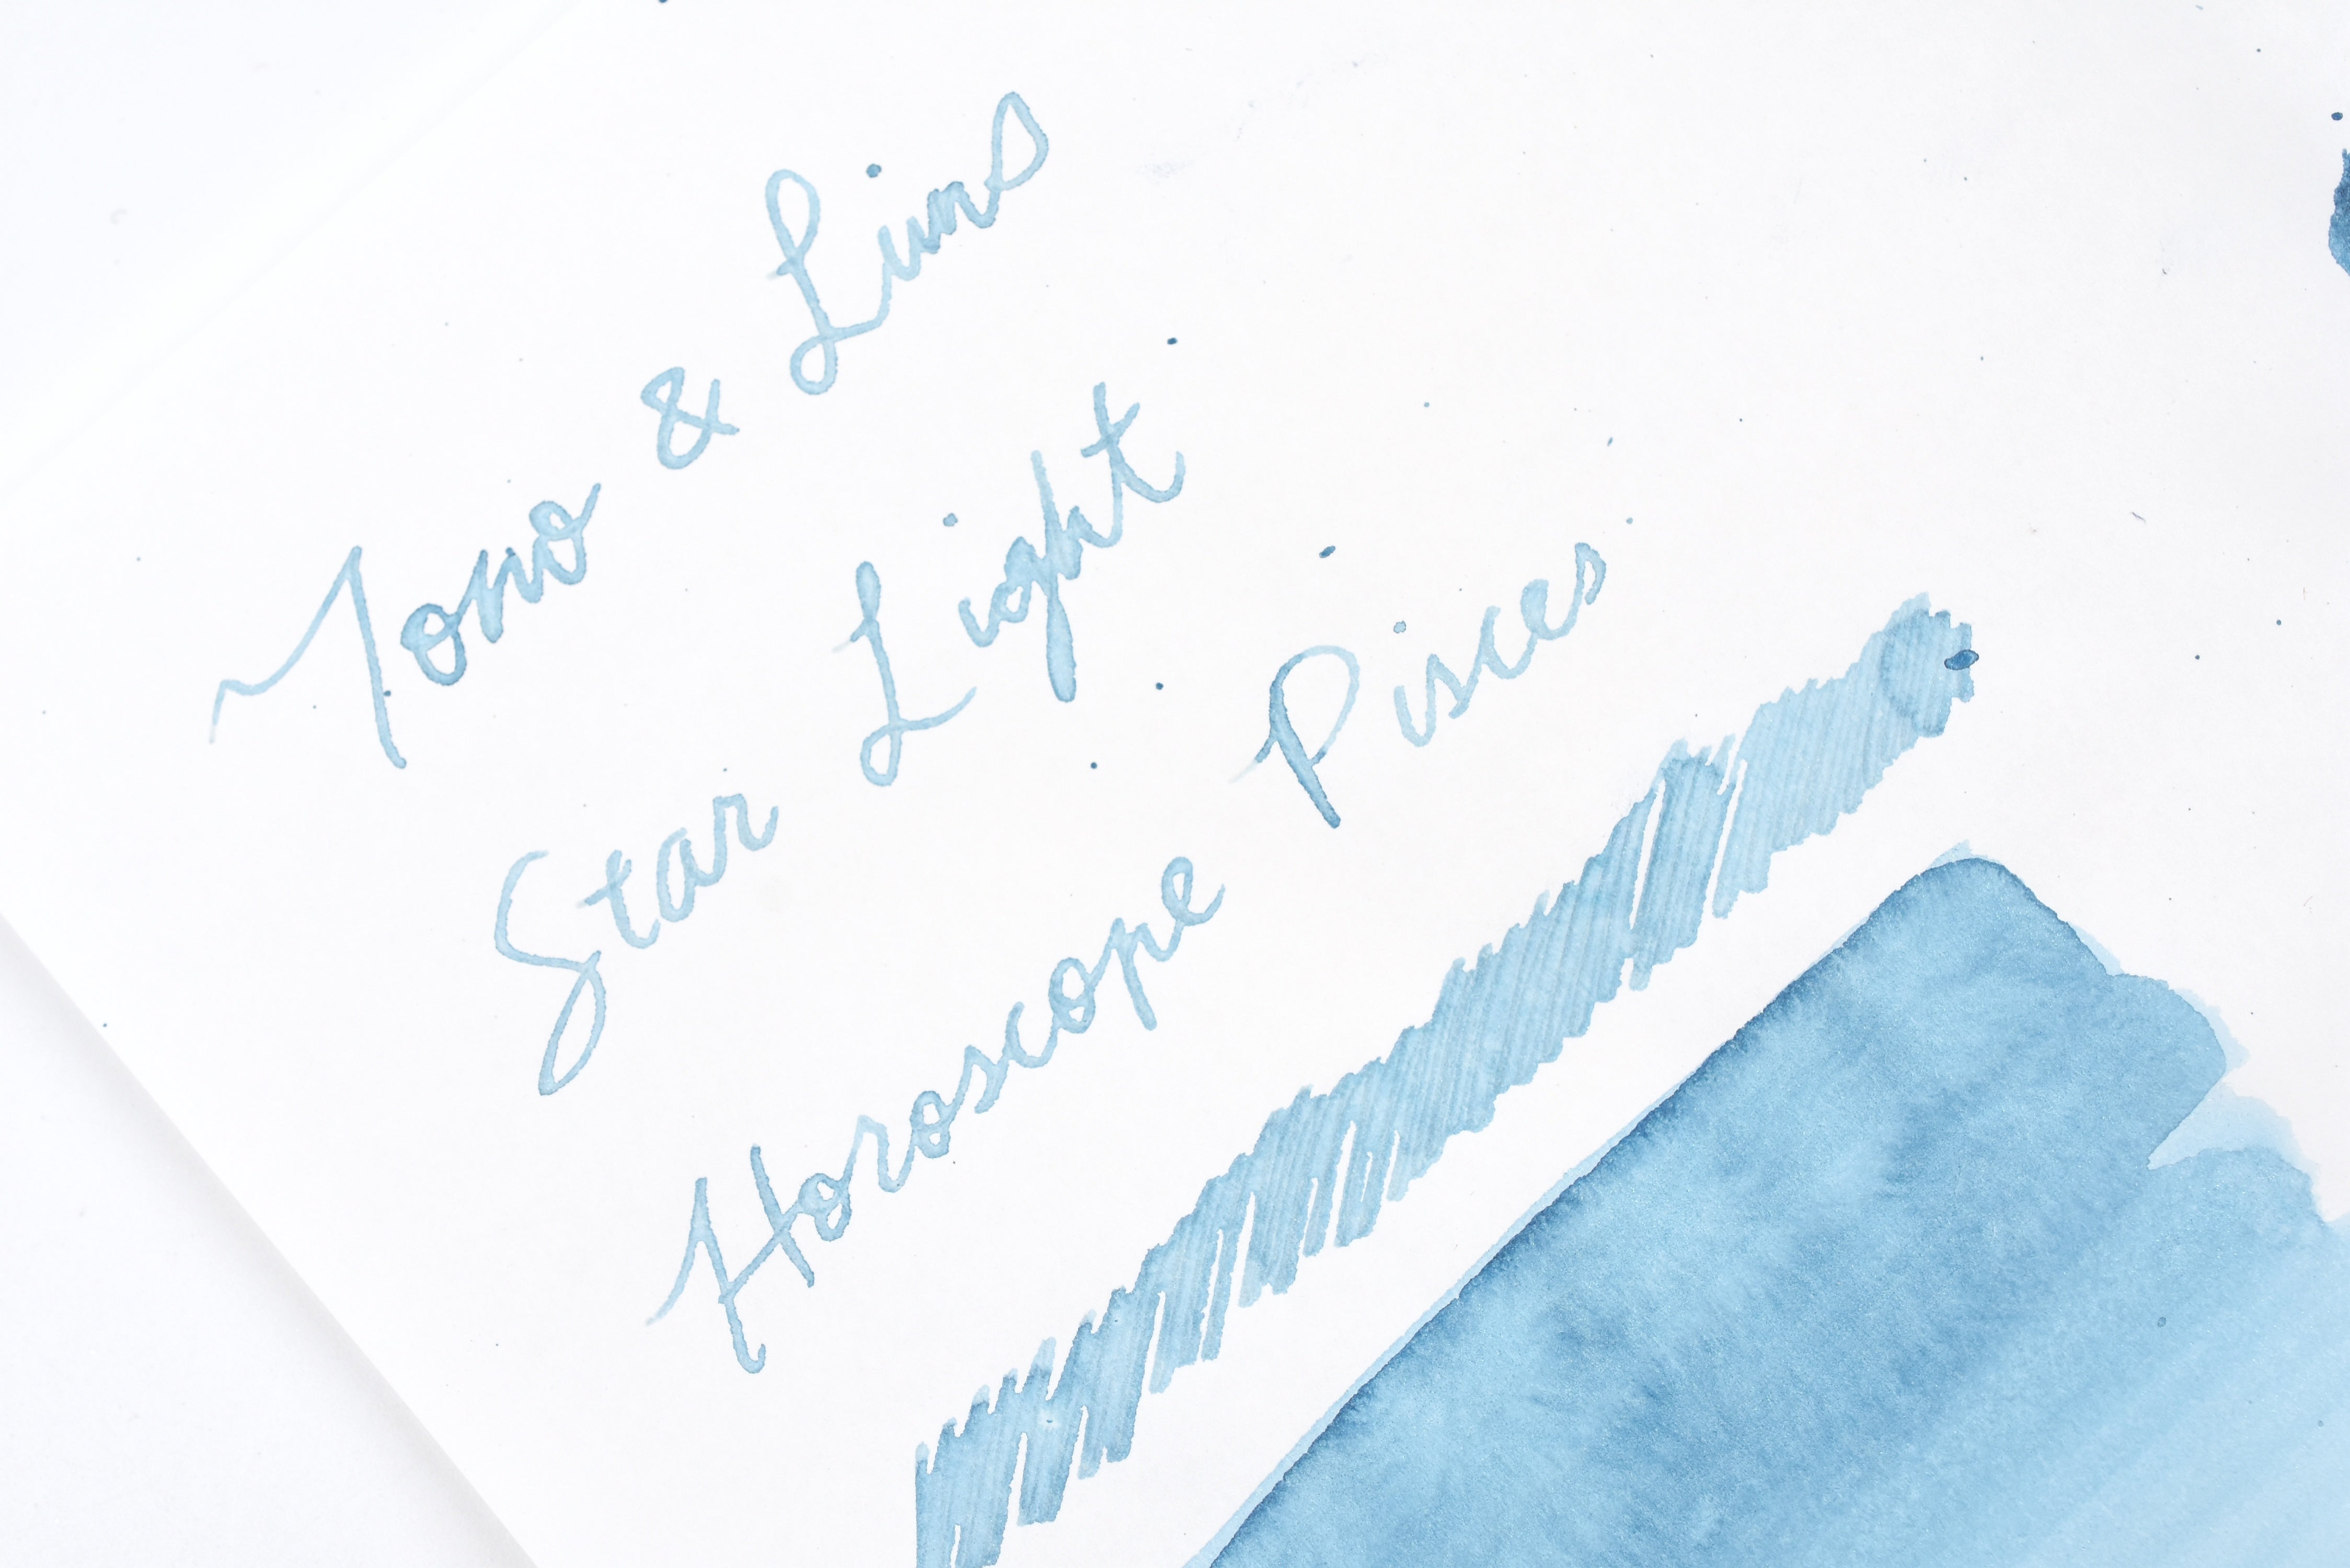 Tono & Lims
Star Light
Horoscope Pisces